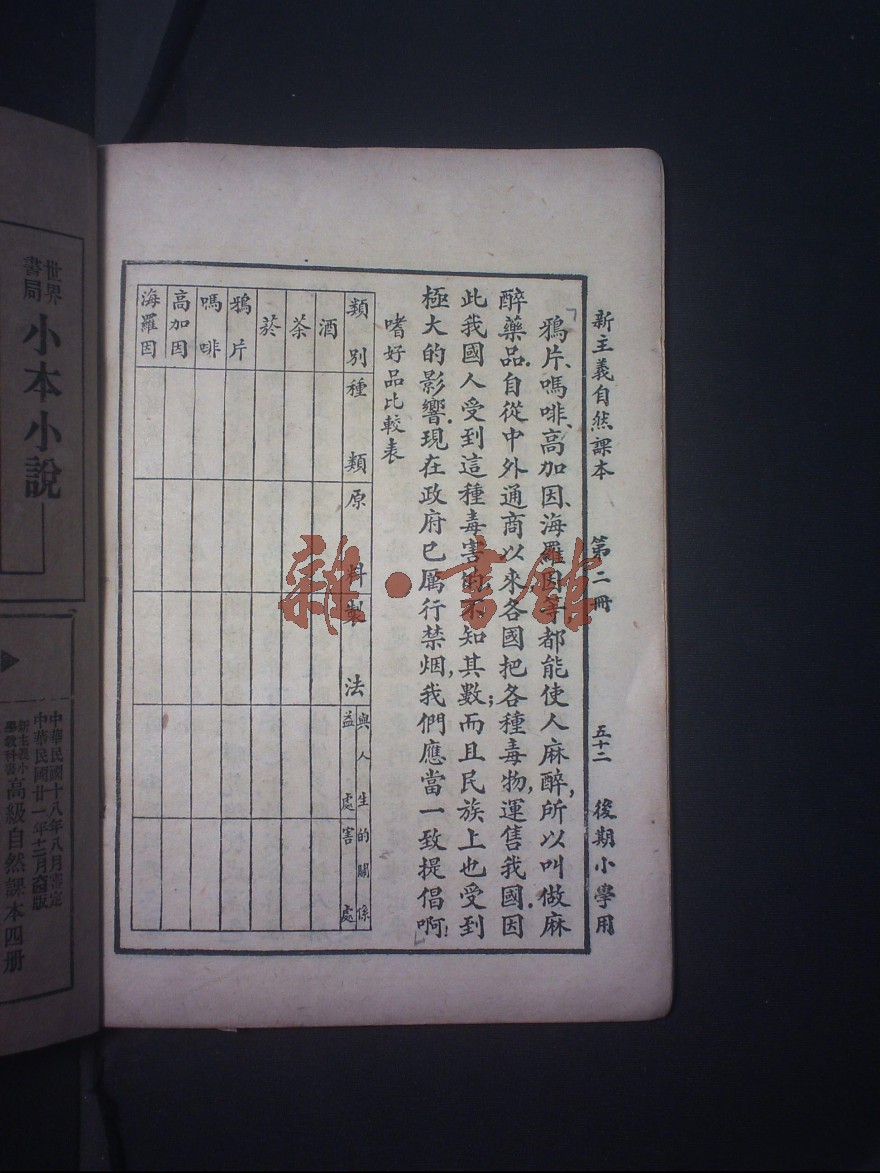 新主義自然課本 第二冊 五十二 後期小學用
「鴉片、嗎啡、高加因、海羅因等,都能使人麻醉,所以叫做麻
醉藥品.自從中外通商以來各國把各種毒物,運售我國.因
此我國人受到這種毒害的,不知其數;而且民族上也受到
極大的影響.現在政府已厲行禁烟,我們應當一致提倡啊!」
嗜好品比較表
類別 種類 原料 製法 與人生的關係 益處 害處
酒
茶
菸
鴉片
嗎啡
高加因
海羅因
雜·書館
世界書局 小本小說
中華民國十八年八月審定
中華民國廿一年十二月 版
新主義小學教科書 高級自然課本四册